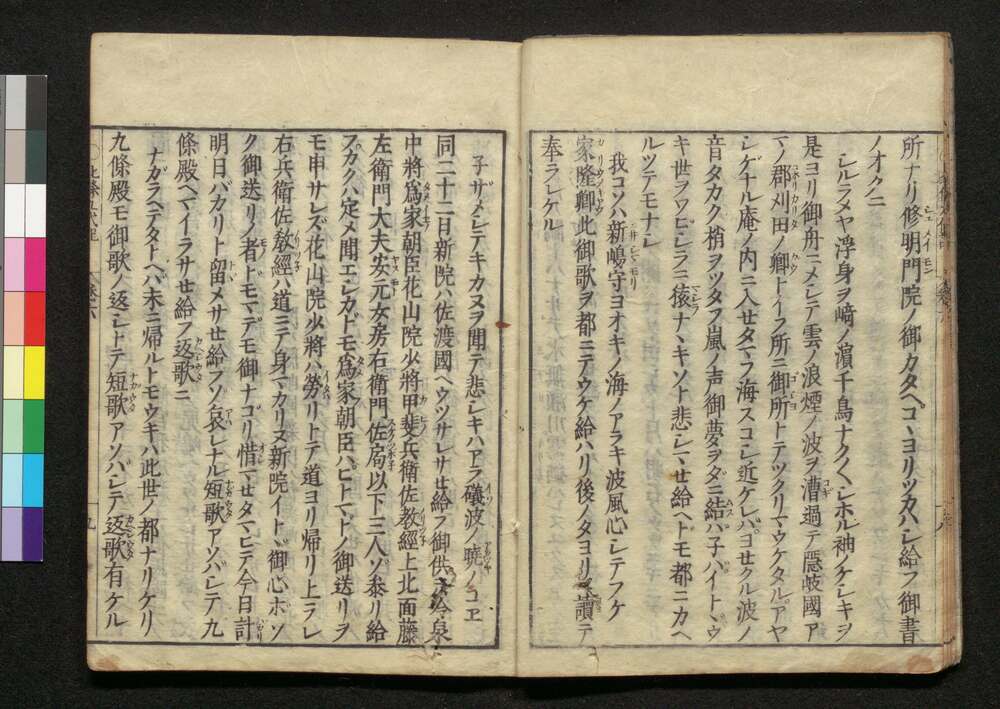 所ナリ修明門院ノ御カタヘコヽヨリツカハシ給フ御書
ノオクニ
シルラメヤ浮身ヲ﨑ノ濵千鳥ナク〳〵シホル袖ノケシキヲ
是ヨリ御舟ニメシテ雲ノ浪煙ノ波ヲ漕過テ隠岐國ア
マノ郡刈田ノ郷トイフ所ニ御所トテツクリマウケタルアヤ
シゲナル庵ノ内ニ入セタマフ海スコシ近ケレバヨセクル波ノ
音タカク梢ヲツタフ嵐ノ声御夢ヲダニ結ハ子バイトヾウ
キ世ヲワビシラニ猿ナヽキソト悲シマせ給ヘトモ都ニカヘ
ルツテモナシ
我コソハ新嶋守ヨオキノ海ノアラキ波風心シテフケ
家隆卿此御歌ヲ都ニテウケ給ハリ後ノタヨリニ讀テ
奉ラレケル
子ザメシテキカヌヲ聞テ悲シキハアラ礒波ノ暁ノコヱ
同二十二日新院ハ佐渡國ヘウツサレサせ給フ御供ニハ冷泉
中將爲家朝臣花山院少將甲斐兵衛佐教經上北面藤
左衛門大夫安元女房右衛門佐局以下三人ゾ参リ給
フカクハ定メ聞エシカドモ爲家朝臣ハヒトマトノ御送リヲ
モ申サレズ花山院少將ハ勞リトテ道ヨリ帰リ上ラレ
右兵衛佐教經ハ道ニテ身マカリヌ新院イトヾ御心ボソ
ク御送リノ者トモマデモ御ナゴリ惜マせタマヒテ今日計
明日バカリト留メサせ給フゾ哀レナル短歌アソバシテ九
條殿ヘマイラサせ給フ返歌ニ
ナガラヘテタトヘバ末ニ帰ルトモウキハ此世ノ都ナリケリ
九條殿モ御歌ノ返シトテ短歌アソバシテ返歌有ケル
九